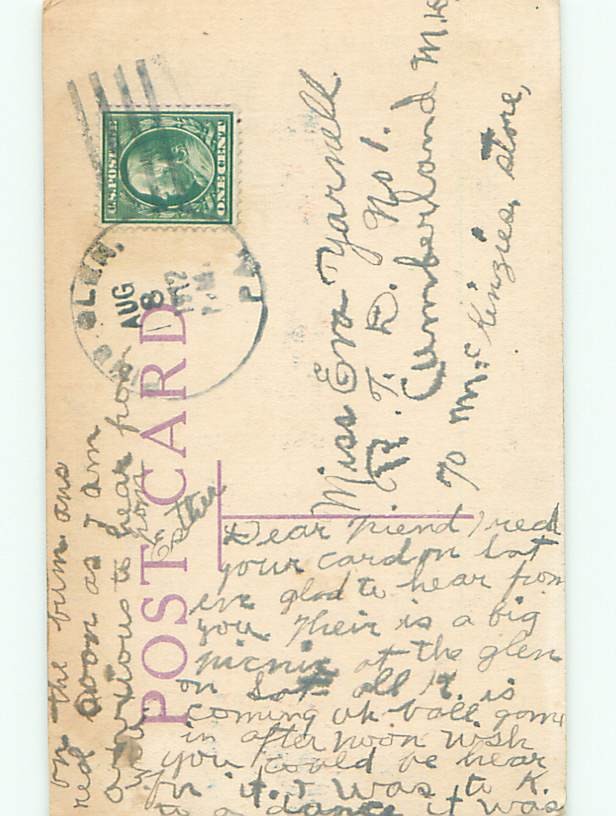 U.S. POSTAGE
ONE CENT
GLEN,
PA
AUG
8
1912
P.M.
POST CARD
Miss Eva Yarnell.
R. F. D. No 1.
Cumberland Md
To Mc Kinzies, store,
Dear Friend I recd
your card on Sat
eve glad to hear from
you Their is a big
picnic at the glen
on Sat all K. is
coming up ball game
in after noon wish
you could be hear
for it. I was to K.
to a dance it was
on the bum ans
red soon as I am
anxious to hear from
from
Esther